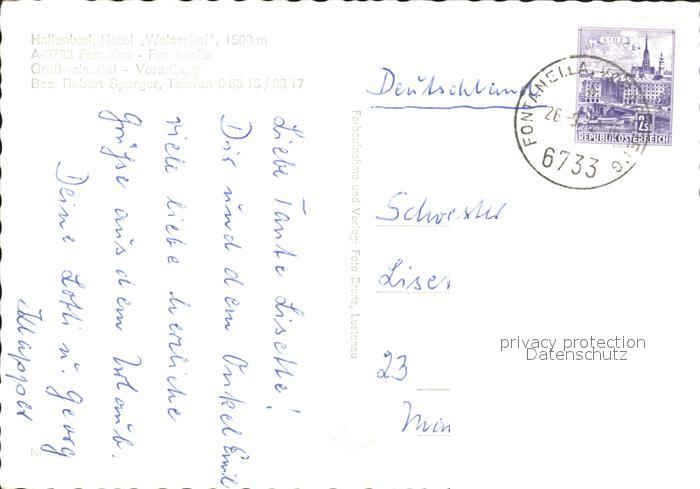 Hallenbad, Hotel „Walserhof", 1500 m
A-6733 Faschina - Fontanella
Großwalsertal - Vorarlberg
Bes. Robert Sperger, Telefon 0 55 15 / 30 17
LINZ
2.50
REPUBLIK ÖSTERREICH
FONTANELLA, VORARLBERG
26.
6733
Deutschland
Liebe Tante Lisette!
Dir und dem Onkel Emil
viele liebe herzliche
Grüße aus dem Urlaub.
Deine Lotti u. Georg
Farbaufnahme und Verlag: Foto Branz, Lustenau
Schwester
Liset
23
privacy protection
Datenschutz